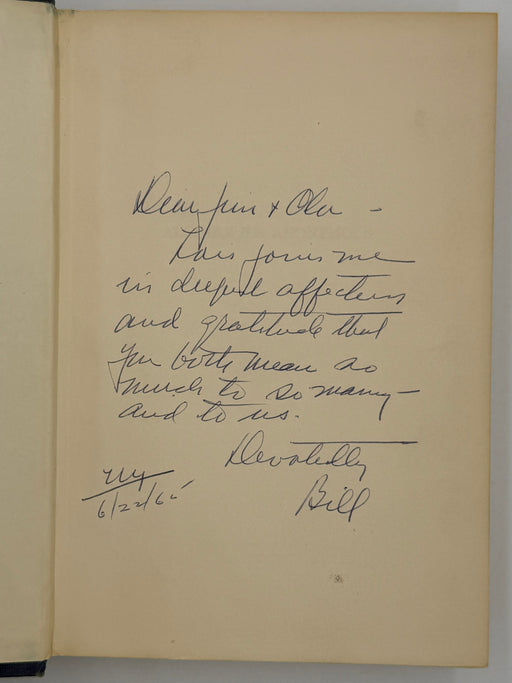 Dear Jim & Ola –
Lois joins me
in deepest affection
and gratitude that
you both mean so
much to so many –
and to us.
Devotedly
Bill
NY
6/22/65